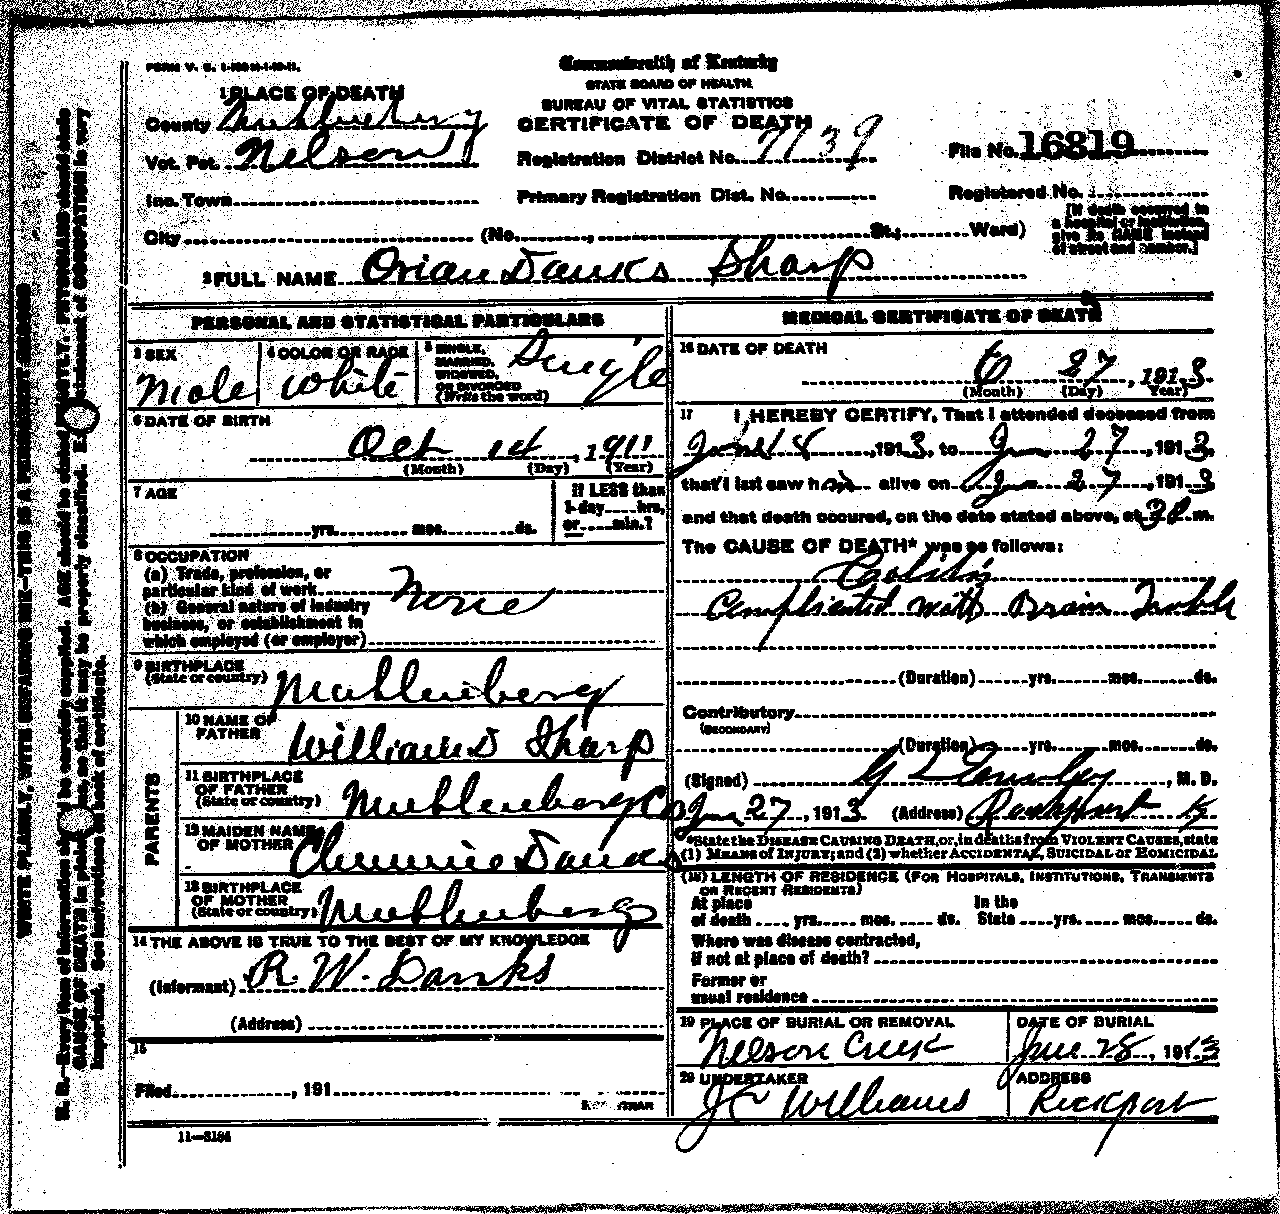 FORM V. S.
Commonwealth of Kentucky
STATE BOARD OF HEALTH
BUREAU OF VITAL STATISTICS
CERTIFICATE OF DEATH
1 PLACE OF DEATH
County Muhlenberg
Vot. Pct. Nelson
Registration District No. 7139
File No. 16819
Inc. Town
Primary Registration Dist. No.
Registered No.
City (No. , St.; Ward)
[If death occurred in
a hospital or institution,
give its NAME instead
of street and number.]
2 FULL NAME Orian Danks Sharp
PERSONAL AND STATISTICAL PARTICULARS
3 SEX
Male
4 COLOR OR RACE
White
5 SINGLE,
MARRIED,
WIDOWED,
OR DIVORCED
(Write the word)
Single
6 DATE OF BIRTH
Oct 14, 1911
(Month) (Day) (Year)
7 AGE
yrs. mos. ds.
If LESS than
1 day hrs,
or min.?
8 OCCUPATION
(a) Trade, profession, or
particular kind of work
None
(b) General nature of industry
business, or establishment in
which employed (or employer)
9 BIRTHPLACE
(State or country) Muhlenberg
PARENTS
10 NAME OF
FATHER William D Sharp
11 BIRTHPLACE
OF FATHER
(State or country) Muhlenberg Co
12 MAIDEN NAME
OF MOTHER Danks
13 BIRTHPLACE
OF MOTHER
(State or country) Muhlenberg
14 THE ABOVE IS TRUE TO THE BEST OF MY KNOWLEDGE
(Informant) R. W. Danks
(Address)
15
Filed , 191
REGISTRAR
11—3184
MEDICAL CERTIFICATE OF DEATH
16 DATE OF DEATH
6 27, 1913
(Month) (Day) (Year)
17 I HEREBY CERTIFY, That I attended deceased from
June 18, 1913, to June 27, 1913,
that I last saw him alive on June 27, 1913
and that death occured, on the date stated above, at m.
The CAUSE OF DEATH* was as follows:
Colitis
Complicated with Brain Trouble
(Duration) yrs. mos. ds.
Contributory
(SECONDARY)
(Duration) yrs. mos. ds.
(Signed) , M. D.
June 27, 1913 (Address) Rockport Ky
*State the DISEASE CAUSING DEATH, or, in deaths from VIOLENT CAUSES, state
(1) MEANS of INJURY; and (2) whether ACCIDENTAL, SUICIDAL or HOMICIDAL
(18) LENGTH OF RESIDENCE (FOR HOSPITALS, INSTITUTIONS, TRANSIENTS
OR RECENT RESIDENTS)
At place
of death yrs. mos. ds.
In the
State yrs. mos. ds.
Where was disease contracted,
if not at place of death?
Former or
usual residence
19 PLACE OF BURIAL OR REMOVAL
Nelson Creek
DATE OF BURIAL
June 28, 1913
20 UNDERTAKER
J C Williams
ADDRESS
Rockport
WRITE PLAINLY, WITH UNFADING INK—THIS IS A PERMANENT RECORD
N. B.—Every item of information should be carefully supplied. AGE should be stated EXACTLY. PHYSICIANS should state
CAUSE OF DEATH in plain terms, so that it may be properly classified. Exact statement of OCCUPATION is very
important. See instructions on back of certificate.